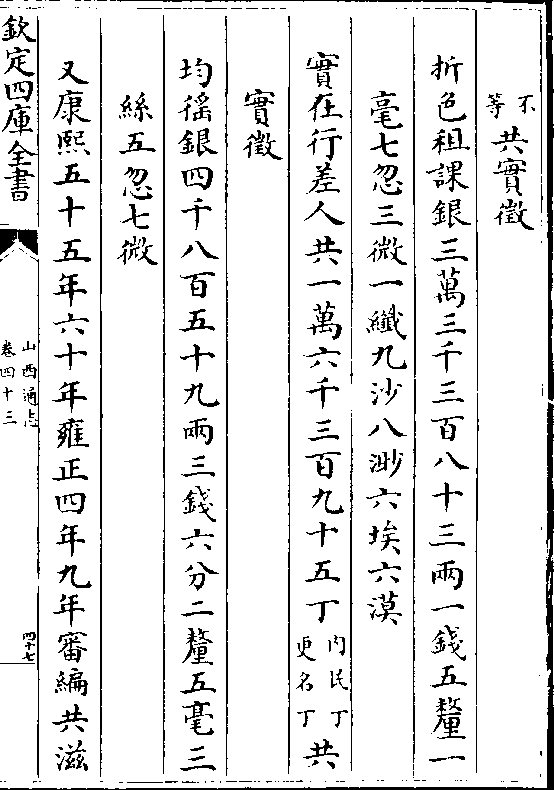 不等共實徵
折色租課銀三萬三千三百八十三兩一錢五釐一
毫七忽三微一纖九沙八渺六埃六漠
實在行差人共一萬六千三百九十五丁內民丁更名丁共
實徵
均徭銀四千八百五十九兩三錢六分二釐五毫三
絲五忽七微
又康熙五十五年六十年雍正四年九年審編共滋
欽定四庫全書
山西通志
卷四十三
四十七